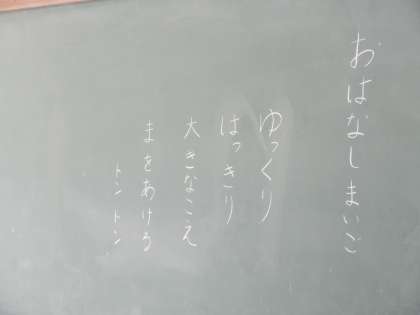 おはなしまいご
ゆっくり
はっきり
大きなこえ
まをあける
トントン